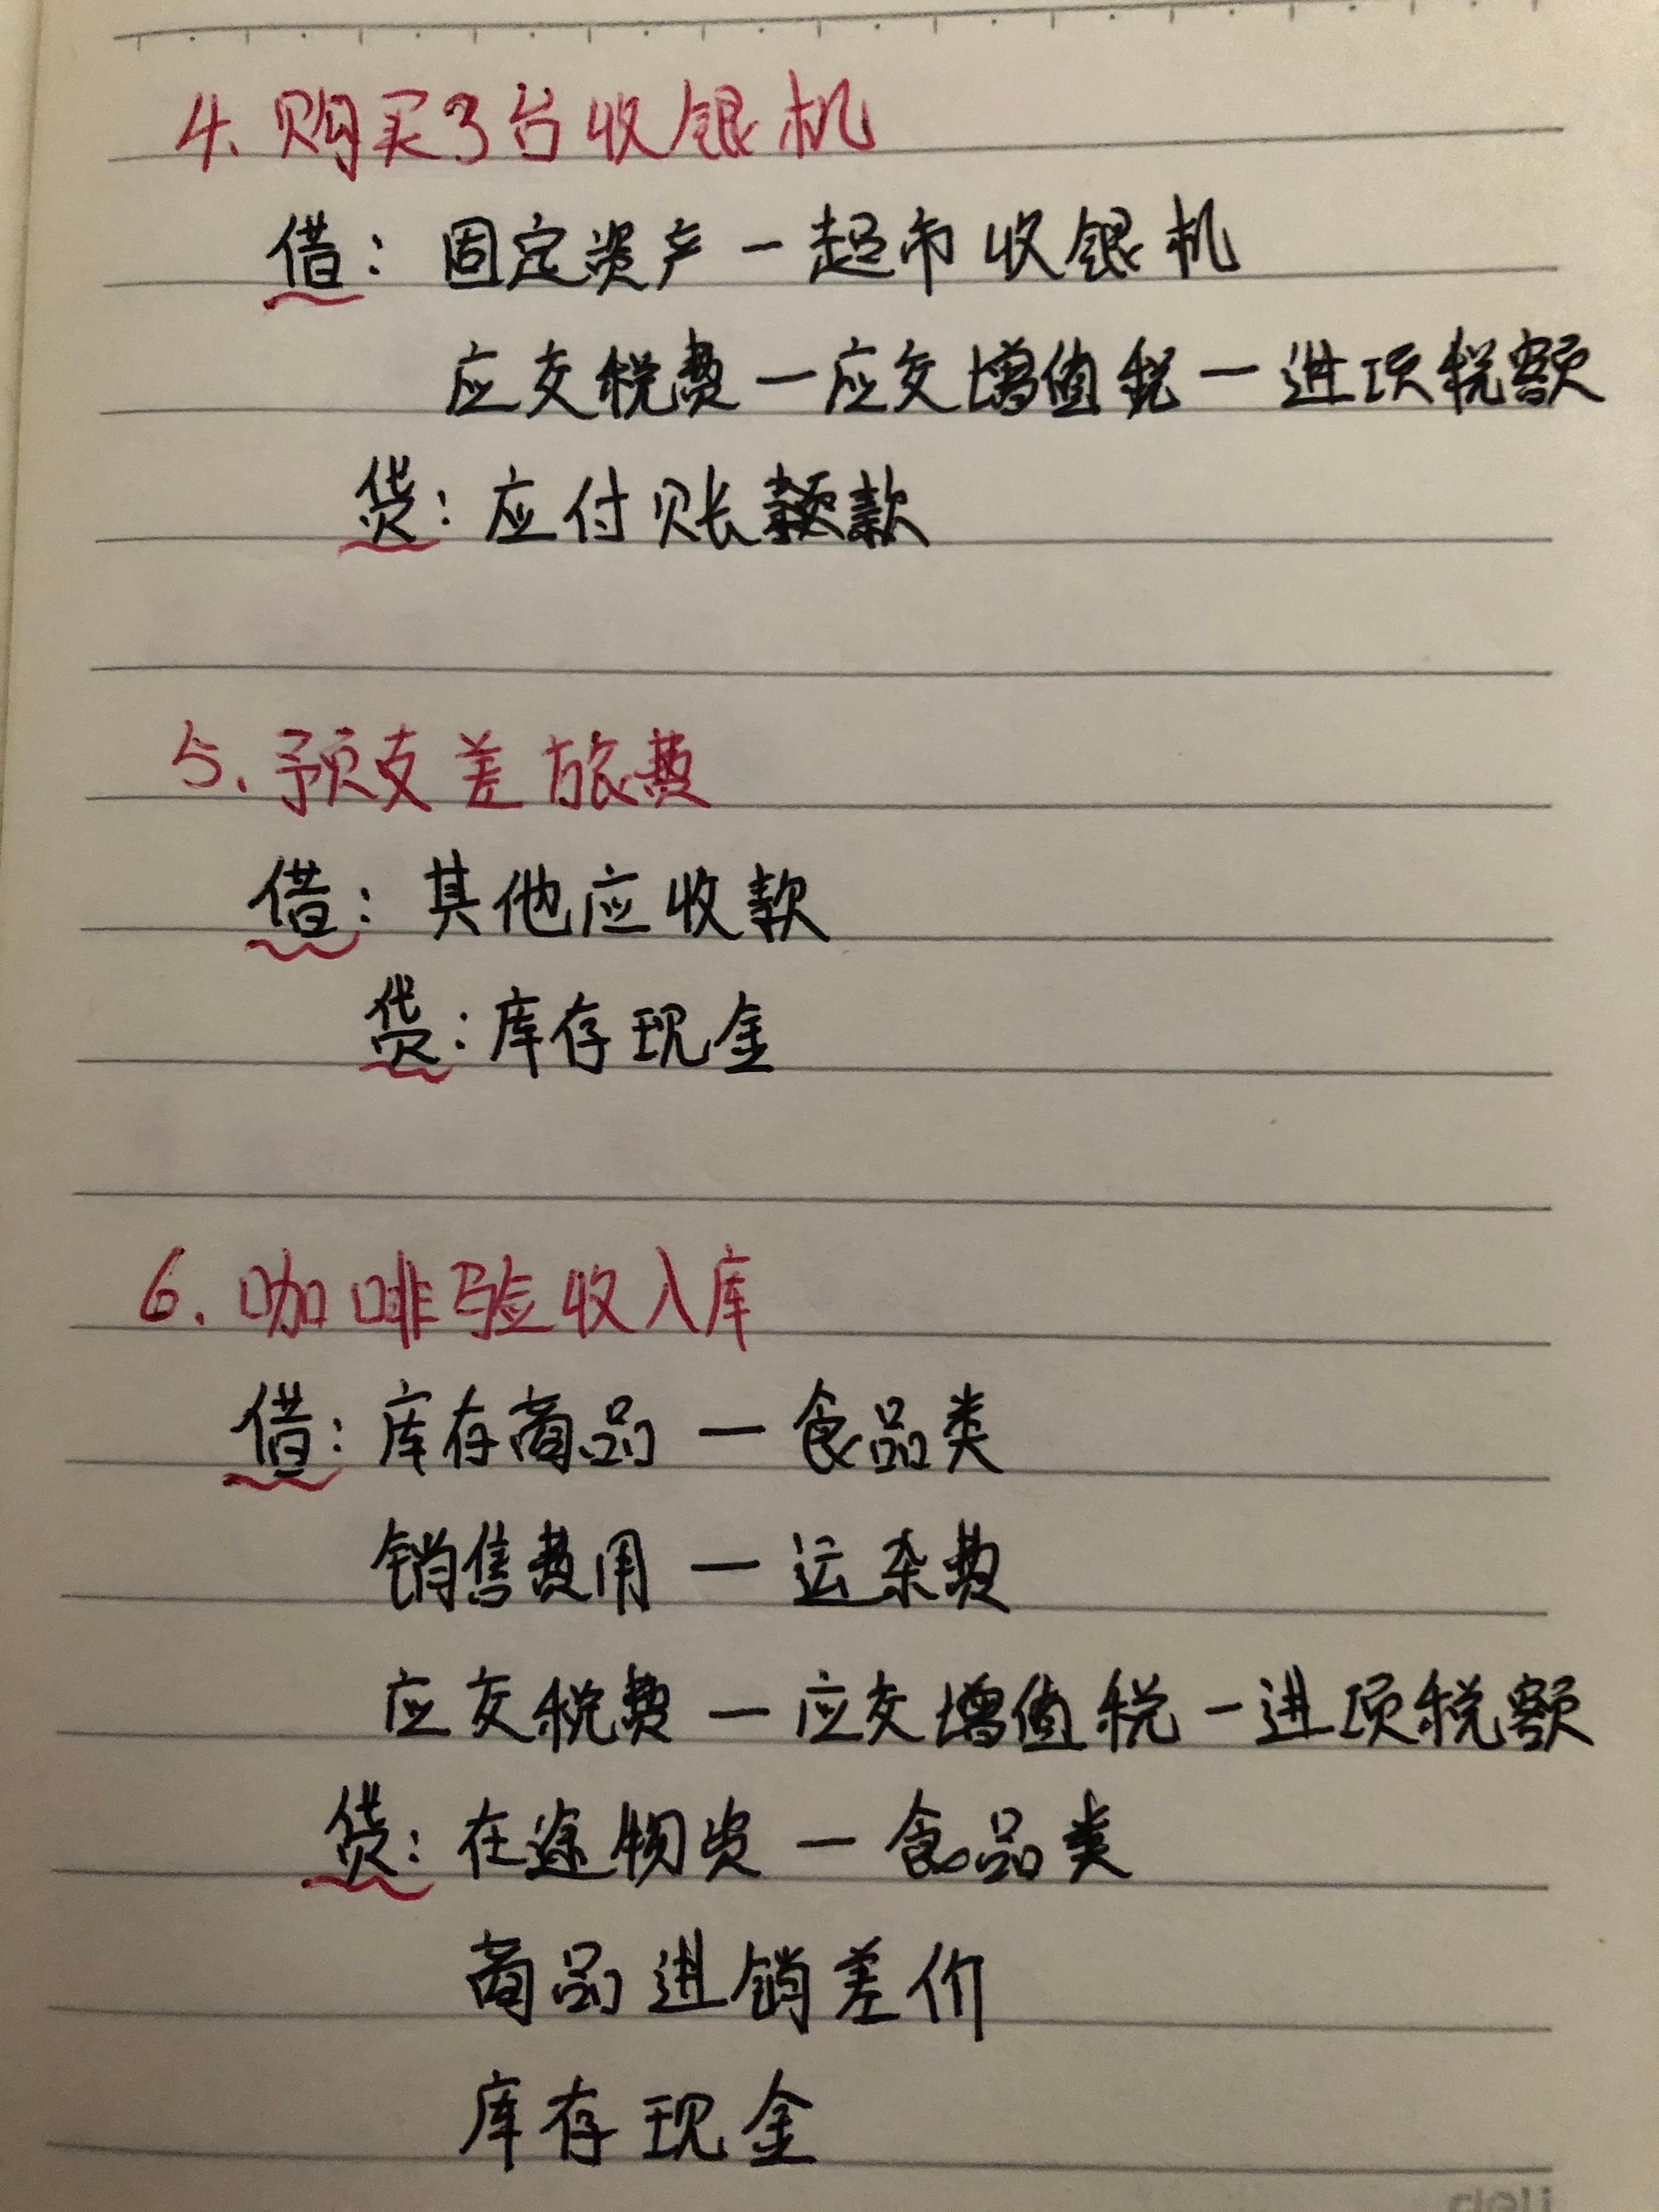 4. 购买3台收银机
借：固定资产－超市收银机
应交税费－应交增值税－进项税额
贷：应付账款
5. 预支差旅费
借：其他应收款
贷：库存现金
6. 咖啡验收入库
借：库存商品－食品类
销售费用－运杂费
应交税费－应交增值税－进项税额
贷：在途物资－食品类
商品进销差价
库存现金
deli